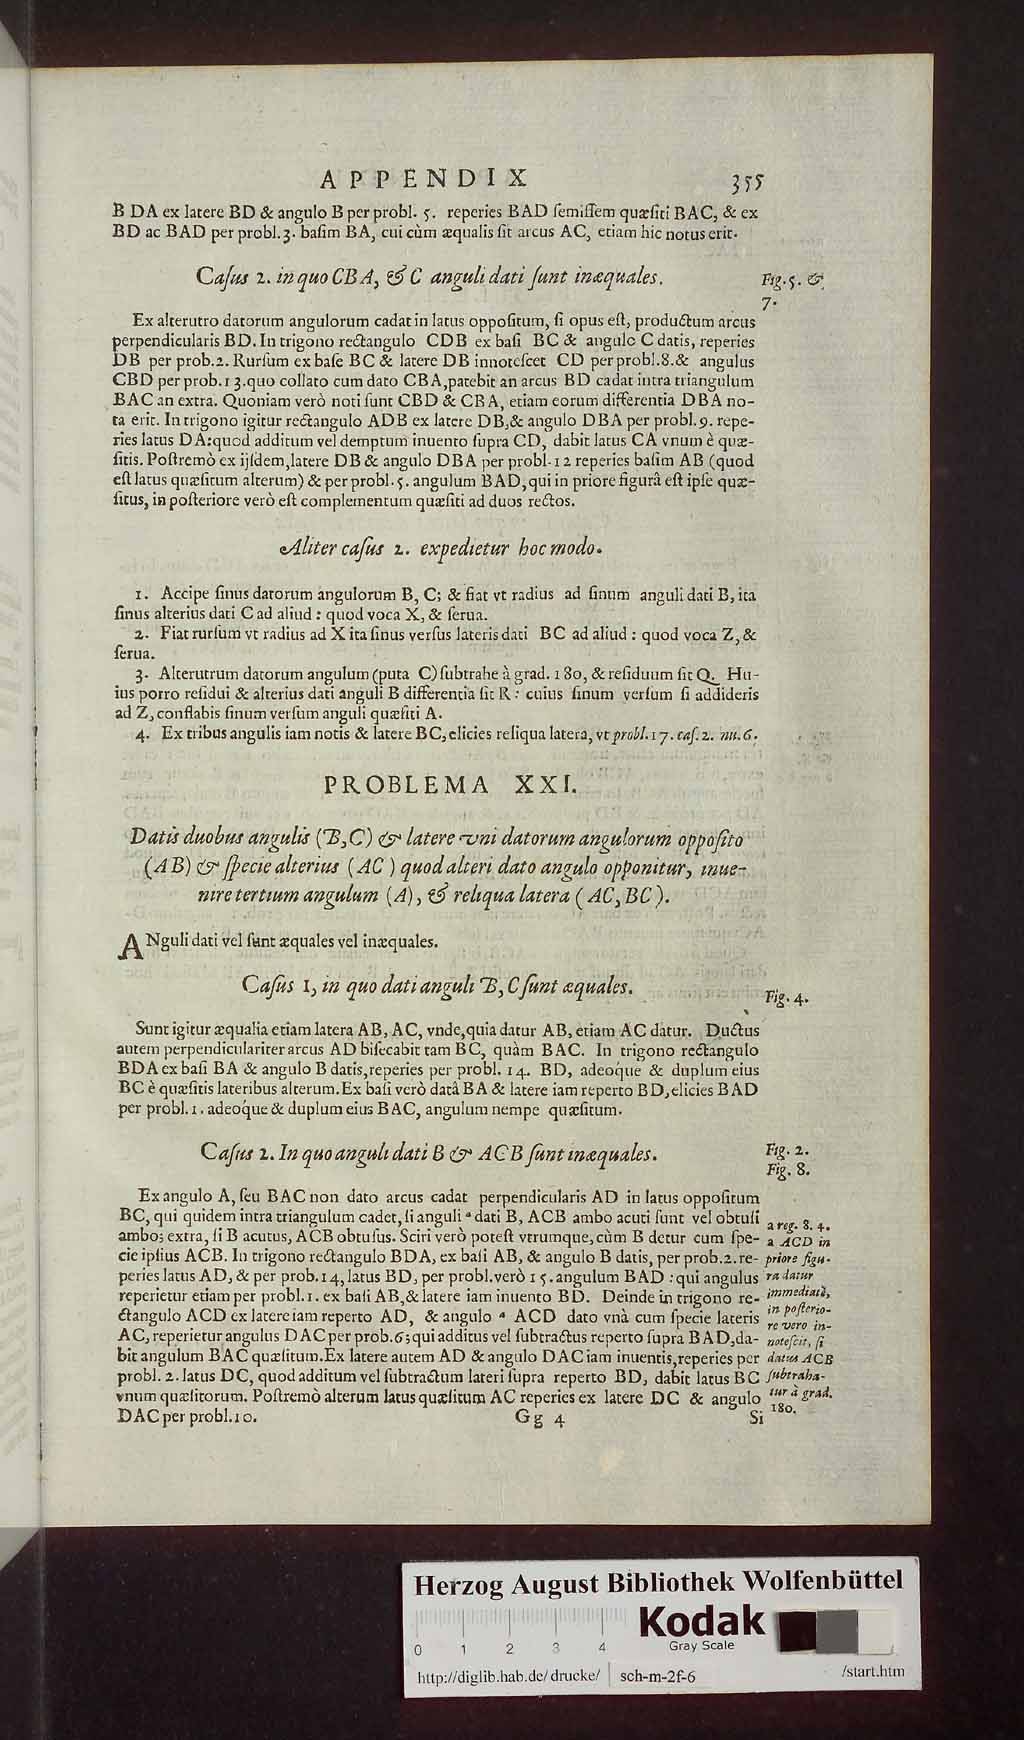 APPENDIX 355
BDA ex latere BD & angulo B per probl. 5. reperies BAD ſemiſſem quæſiti BAC, & ex
BD ac BAD per probl. 3. baſim BA, cui cùm æqualis ſit arcus AC, etiam hic notus erit.
Caſus 2. in quo CBA, & C anguli dati ſunt inæquales.
Fig. 5. &
7.
Ex alterutro datorum angulorum cadat in latus oppoſitum, ſi opus eſt, productum arcus
perpendicularis BD. In trigono rectangulo CDB ex baſi BC & angulo C datis, reperies
DB per prob. 2. Rurſum ex baſe BC & latere DB innoteſcet CD per probl. 8. & angulus
CBD per prob. 13. quo collato cum dato CBA, patebit an arcus BD cadat intra triangulum
BAC an extra. Quoniam verò noti ſunt CBD & CBA, etiam eorum differentia DBA no-
ta erit. In trigono igitur rectangulo ADB ex latere DB, & angulo DBA per probl. 9. repe-
ries latus DA: quod additum vel demptum inuento ſupra CD, dabit latus CA vnum è quæ-
ſitis. Poſtremò ex ijſdem, latere DB & angulo DBA per probl. 12 reperies baſim AB (quod
eſt latus quæſitum alterum) & per probl. 5. angulum BAD, qui in priore figurâ eſt ipſe quæ-
ſitus, in poſteriore verò eſt complementum quæſiti ad duos rectos.
Aliter caſus 2. expedietur hoc modo.
1. Accipe ſinus datorum angulorum B, C; & fiat vt radius ad ſinum anguli dati B, ita
ſinus alterius dati C ad aliud : quod voca X, & ſerua.
2. Fiat rurſum vt radius ad X ita ſinus verſus lateris dati BC ad aliud : quod voca Z, &
ſerua.
3. Alterutrum datorum angulum (puta C) ſubtrahe à grad. 180, & reſiduum ſit Q. Hu-
ius porro reſidui & alterius dati anguli B differentia ſit R : cuius ſinum verſum ſi addideris
ad Z, conflabis ſinum verſum anguli quæſiti A.
4. Ex tribus angulis iam notis & latere BC, elicies reliqua latera, vt probl. 17. caſ. 2. nu. 6.
PROBLEMA XXI.
Datis duobus angulis (B, C) & latere vni datorum angulorum oppoſito
(AB) & ſpecie alterius (AC) quod alteri dato angulo opponitur, inue-
nire tertium angulum (A), & reliqua latera (AC, BC).
ANguli dati vel ſunt æquales vel inæquales.
Caſus 1, in quo dati anguli B, C ſunt æquales.
Fig. 4.
Sunt igitur æqualia etiam latera AB, AC, vnde, quia datur AB, etiam AC datur. Ductus
autem perpendiculariter arcus AD biſecabit tam BC, quàm BAC. In trigono rectangulo
BDA ex baſi BA & angulo B datis, reperies per probl. 14. BD, adeoque & duplum eius
BC è quæſitis lateribus alterum. Ex baſi verò datâ BA & latere iam reperto BD, elicies BAD
per probl. 1. adeoque & duplum eius BAC, angulum nempe quæſitum.
Caſus 2. In quo anguli dati B & ACB ſunt inæquales.
Fig. 2.
Fig. 8.
Ex angulo A, ſeu BAC non dato arcus cadat perpendicularis AD in latus oppoſitum
BC, qui quidem intra triangulum cadet, ſi anguli a dati B, ACB ambo acuti ſunt vel obtuſi
ambo; extra, ſi B acutus, ACB obtuſus. Sciri verò poteſt vtrumque, cùm B detur cum ſpe-
cie ipſius ACB. In trigono rectangulo BDA, ex baſi AB, & angulo B datis, per prob. 2. re-
peries latus AD, & per prob. 14, latus BD, per probl. verò 15. angulum BAD : qui angulus
reperietur etiam per probl. 1. ex baſi AB, & latere iam inuento BD. Deinde in trigono re-
ctangulo ACD ex latere iam reperto AD, & angulo a ACD dato vnà cum ſpecie lateris
AC, reperietur angulus DAC per prob. 6; qui additus vel ſubtractus reperto ſupra BAD, da-
bit angulum BAC quæſitum. Ex latere autem AD & angulo DAC iam inuentis, reperies per
probl. 2. latus DC, quod additum vel ſubtractum lateri ſupra reperto BD, dabit latus BC
vnum quæſitorum. Poſtremò alterum latus quæſitum AC reperies ex latere DC & angulo
DAC per probl. 10.
a reg. 8. 4.
a ACD in
priore figu-
ra datur
immediatè,
in poſterio-
re vero in-
noteſcit, ſi
datus ACB
ſubtraha-
tur à grad.
180.
Gg 4 Si
Herzog August Bibliothek Wolfenbüttel
Kodak
Gray Scale
0 1 2 3 4
http://diglib.hab.de/drucke/ sch-m-2f-6 /start.htm